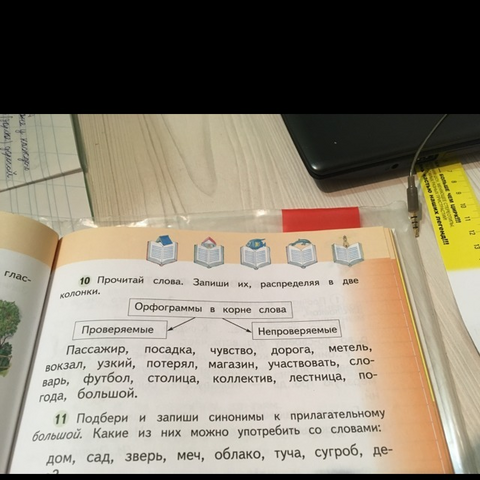 глас-
10 Прочитай слова. Запиши их, распределяя в две
колонки.
Орфограммы в корне слова
Проверяемые
Непроверяемые
Пассажир, посадка, чувство, дорога, метель,
вокзал, узкий, потерял, магазин, участвовать, сло-
варь, футбол, столица, коллектив, лестница, по-
года, большой.
11 Подбери и запиши синонимы к прилагательному
большой. Какие из них можно употребить со словами:
дом, сад, зверь, меч, облако, туча, сугроб, де-